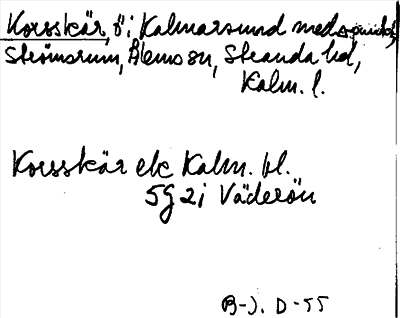 Korsskär, ö i Kalmarsund med
Strömsrum, Ålems sn, Stranda hd,
Kalm. l.
Korsskär ek Kalm. bl.
5G 2i Väderön
B-J. D-55